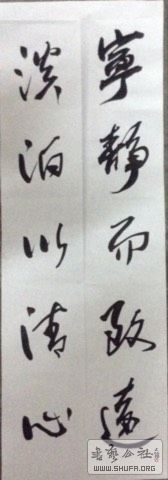 寧靜而致遠
淡泊以清心
書藝公社
WWW.SHUFA.ORG